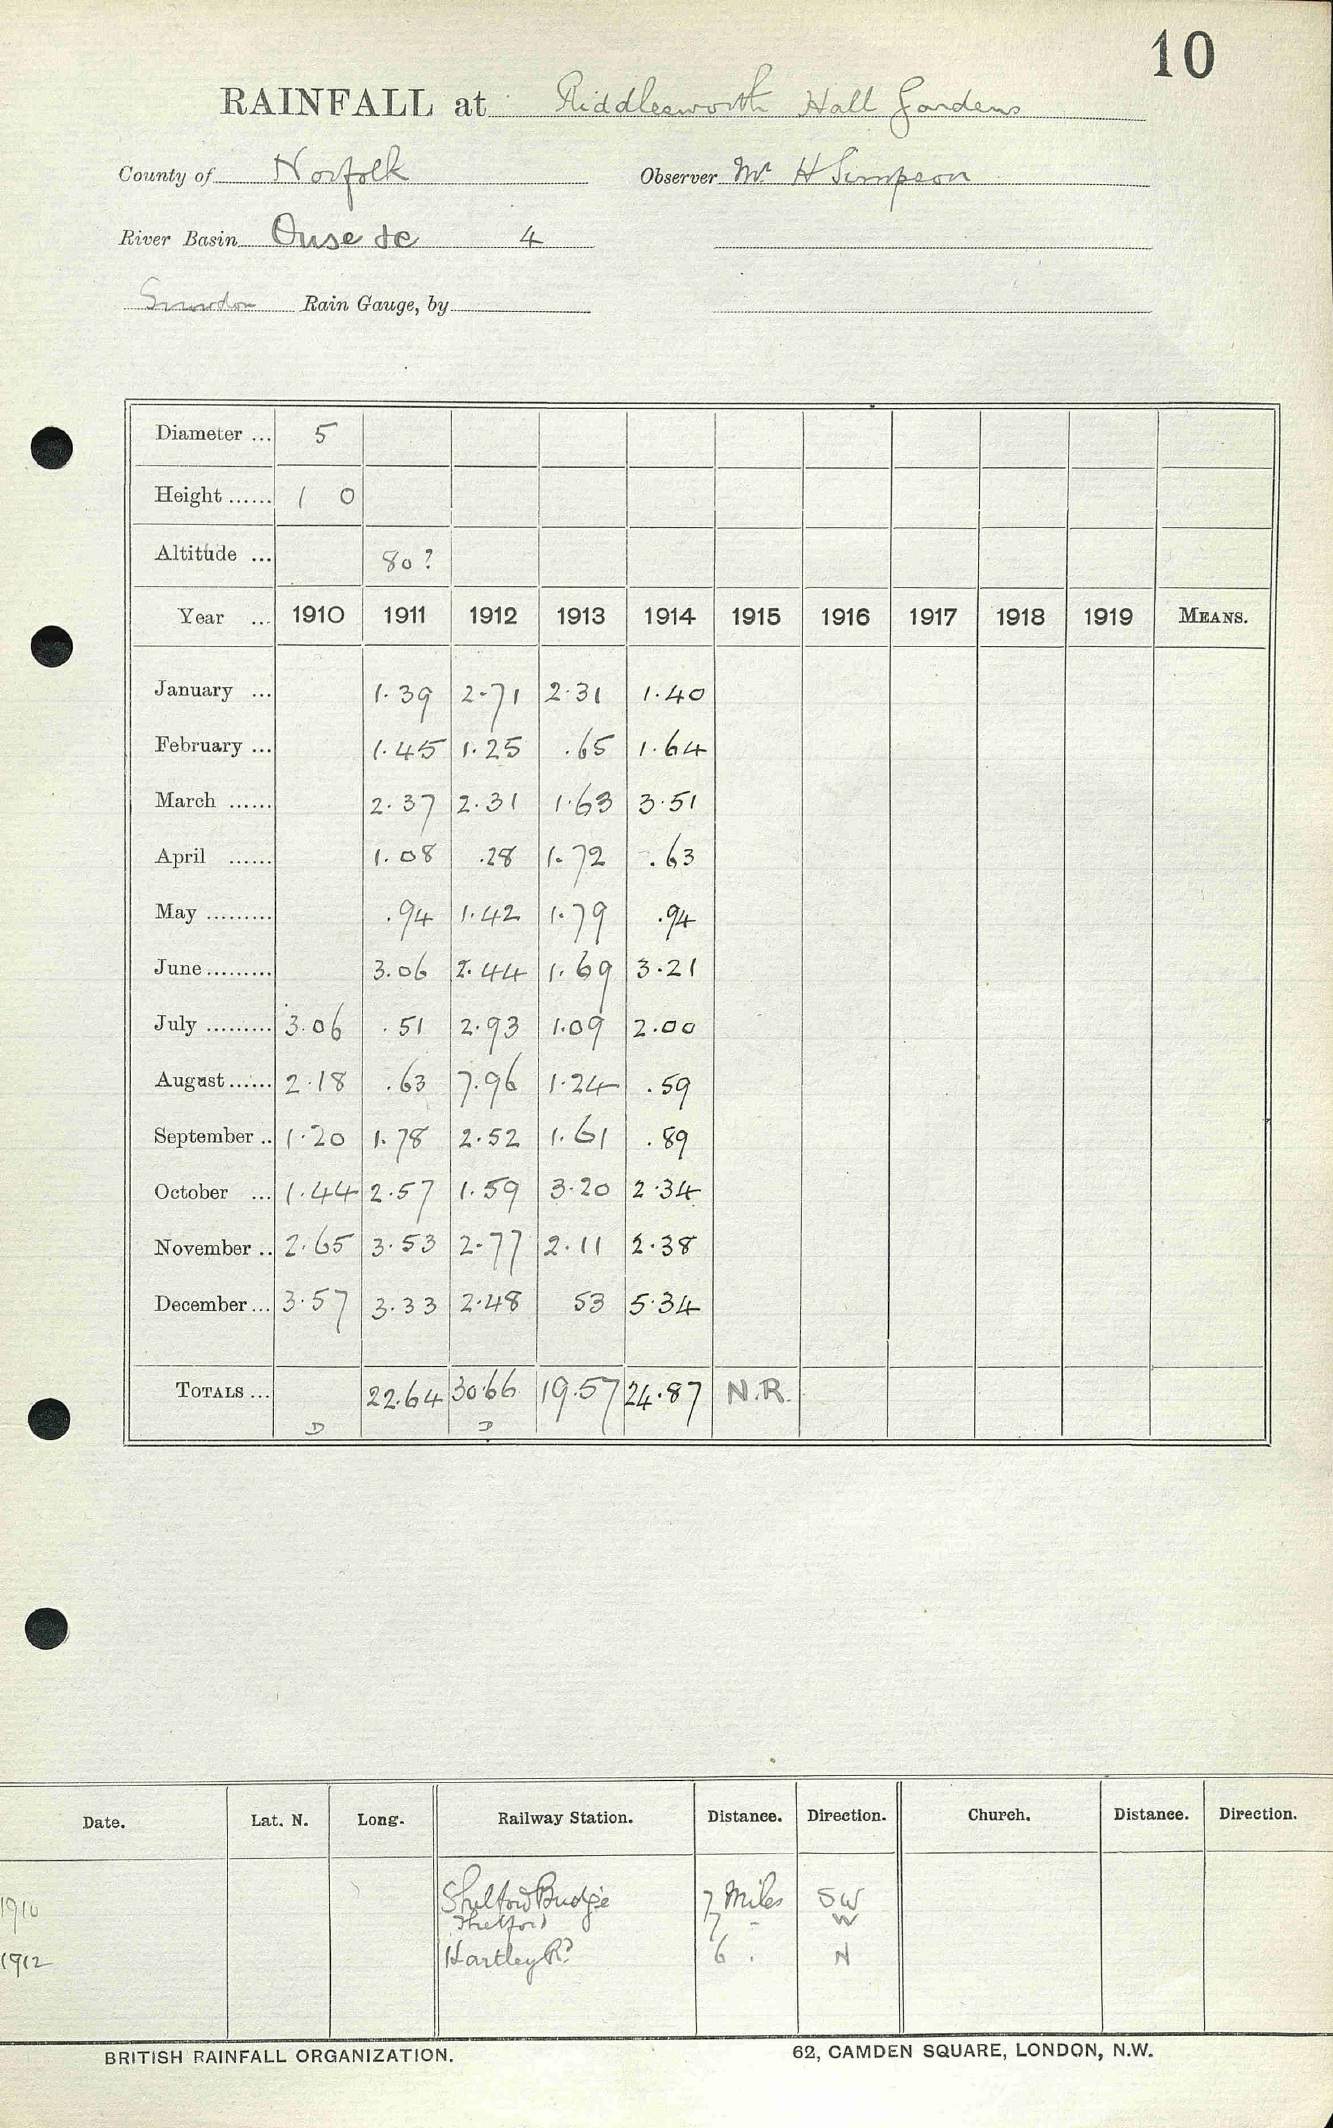 10
RAINFALL at Riddlesworth Hall Gardens
County of Norfolk Observer Mr H Simpson
River Basin Ouse &c 4
Snowdon Rain Gauge, by
Diameter ... 5
Height ...... 1 0
Altitude ... 80?
Year ... 1910 1911 1912 1913 1914 1915 1916 1917 1918 1919 MEANS.
January ... 1.39 2.71 2.31 1.40
February ... 1.45 1.25 .65 1.64
March ...... 2.37 2.31 1.63 3.51
April ...... 1.08 .28 1.72 .63
May ......... .94 1.42 1.79 .94
June ......... 3.06 2.44 1.69 3.21
July ......... 3.06 .51 2.93 1.09 2.00
August ...... 2.18 .63 7.96 1.24 .59
September .. 1.20 1.78 2.52 1.61 .89
October ... 1.44 2.57 1.59 3.20 2.34
November .. 2.65 3.53 2.77 2.11 2.38
December ... 3.57 3.33 2.48 53 5.34
TOTALS ... 22.64 30.66 19.57 24.87 N.R.
D D
Date. Lat. N. Long. Railway Station. Distance. Direction. Church. Distance. Direction.
1910 Bridge 7 Miles SW
Thetford 7 W
1912 6 N
BRITISH RAINFALL ORGANIZATION. 62, CAMDEN SQUARE, LONDON, N.W.